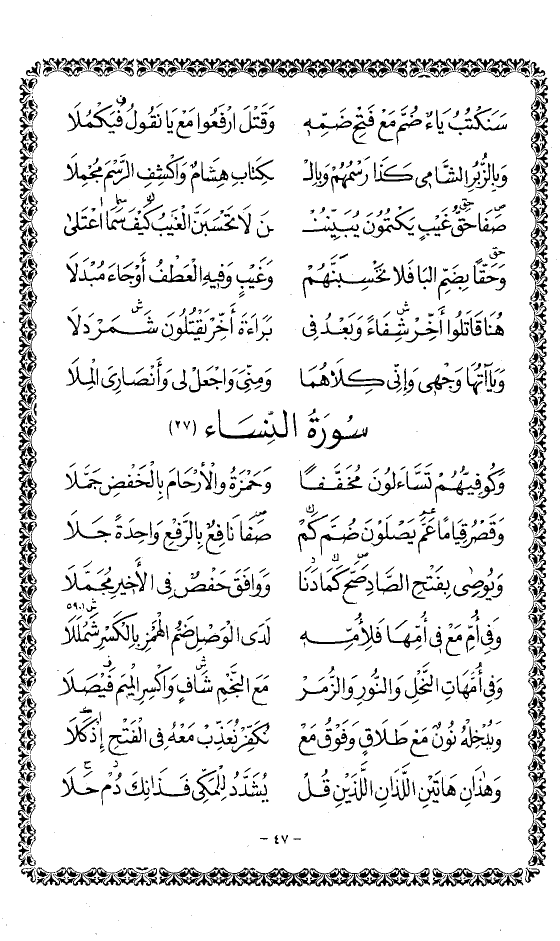 سَنَكْتُبُ يَاءٌ ضُمَّ مَعْ فَتْحِ ضَمِّهِ وَقَتْلَ ارْفَعُوا مَعْ يَا نَقُولُ فَيَكْمُلَا
وَبِالزُّبُرِ الشَّامِي كَذَا رَسْمُهُمْ وَبِالْـ كِتَابِ هِشَامٌ وَاكْشِفِ الرَّسْمَ مُجْمِلَا
صَفَا حَقُّ غَيْبٍ يَكْتُمُونَ يُبَيِّنُنْـ ـنَ لَا تَحْسَبَنَّ الْغَيْبُ كَيْفَ سَمَا اعْتَلَى
وَحَقًّا بِضَمِّ الْبَا فَلَا تَحْسِبَنَّهُمْ وَغَيْبٍ وَفِيهِ الْعَطْفُ أَوْ جَاءَ مُبْدَلَا
هُنَا قَاتَلُوا أَخِّرْ شِفَاءً وَبَعْدُ فِي بَرَاءَةَ أَخِّرْ يَقْتُلُونَ شَمَرْدَلَا
وَيَاآتُهَا وَجْهِي وَإِنِّي كِلَاهُمَا وَمِنِّي وَاجْعَلْ لِي وَأَنْصَارِيَ الْمِلَا
سُورَةُ النِّسَاء (٢٧)
وَكُوفِيُّهُمْ تَسَّاءَلُونَ مُخَفَّفًا وَحَمْزَةُ وَالْأَرْحَامِ بِالْخَفْضِ جَمَّلَا
وَقَصْرُ قِيَامًا عَمَّ يَصْلَوْنَ ضُمَّ كَمْ صَفَا نَافِعٌ بِالرَّفْعِ وَاحِدَةٌ جَلَا
وَيُوصَى بِفَتْحِ الصَّادِ صَحَّ كَمَا دَنَا وَوَافَقَ حَفْصٌ فِي الْأَخِيرِ مُجَمَّلَا
وَفِي أُمِّ مَعْ فِي أُمِّهَا فَلِأُمِّهِ لَدَى الْوَصْلِ ضَمُّ الْهَمْزِ بِالْكَسْرِ شَمْلَلَا
وَفِي أُمَّهَاتِ النَّحْلِ وَالنُّورِ وَالزُّمَرْ مَعَ النَّجْمِ شَافٍ وَاكْسِرِ الْمِيمَ فَيْصَلَا
وَيُدْخِلْهُ نُونٌ مَعْ طَلَاقٍ وَفَوْقُ مَعْ يُكَفِّرْ يُعَذِّبْ مَعْهُ فِي الْفَتْحِ إِذْ كَلَا
وَهٰذَانِ هَاتَيْنِ اللَّذَانِ اللَّذَيْنِ قُلْ يُشَدَّدُ لِلْمَكِّي فَذَانِكَ دُمْ حَلَا
- ٤٧ -